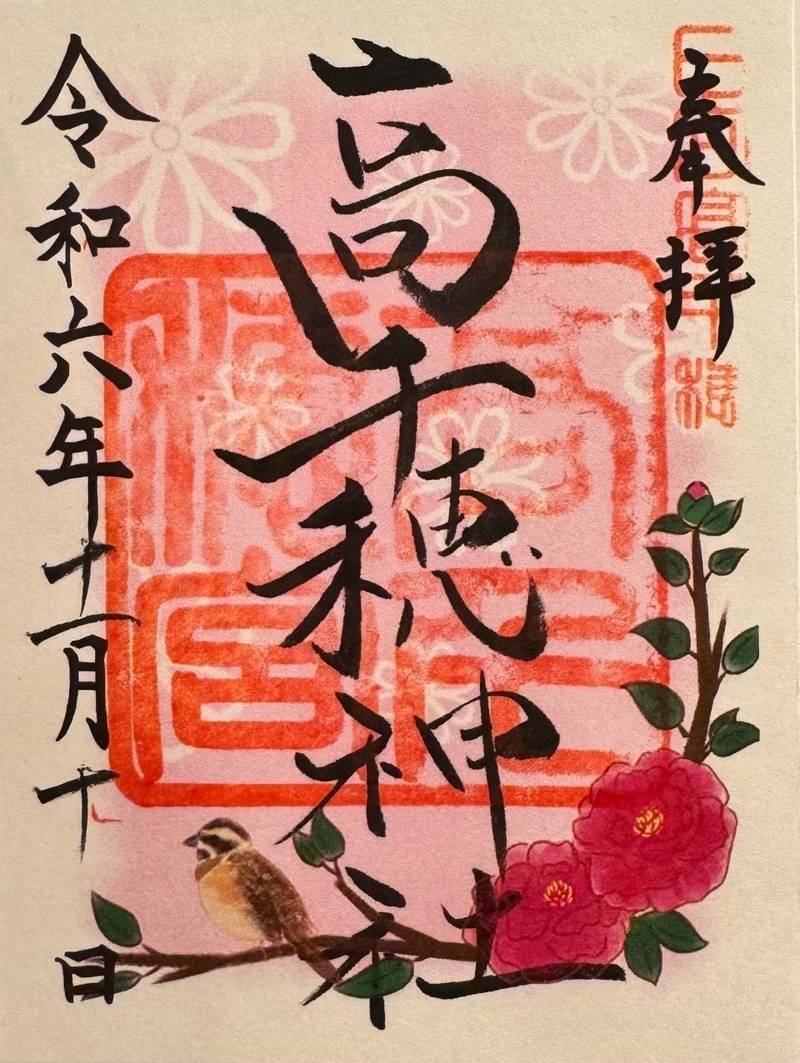 奉拝
高千穂神社
令和六年十一月十日